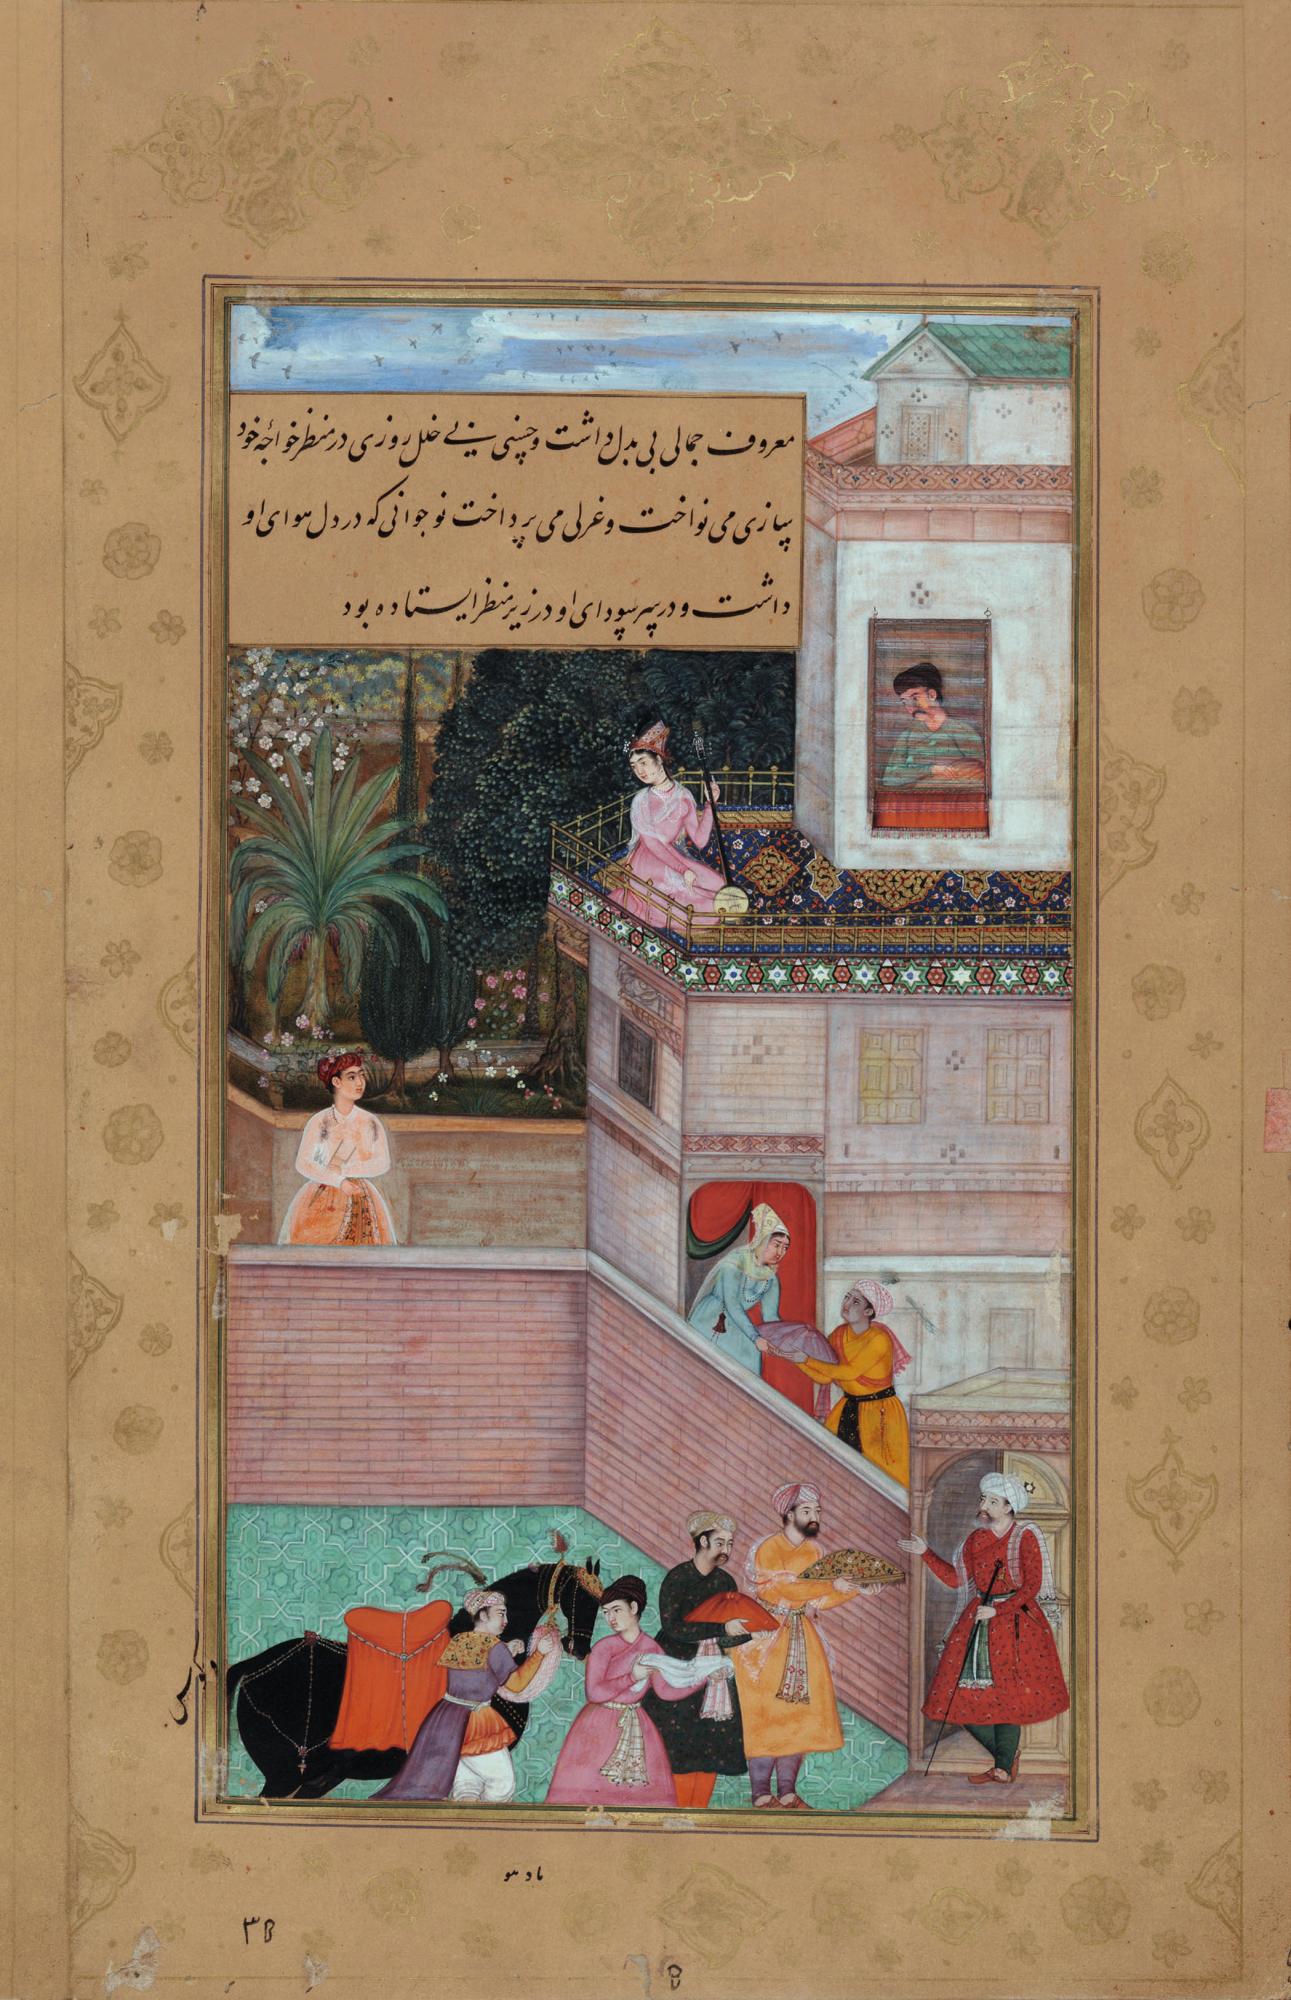 معروف جمالی بی بدل داشت و حسنی بی خلل روزی در منظر خواجه خود
بسازی می نواخت و غزلی می پرداخت نوجوانی که در دل هوای او
داشت و در سر سودای او در زیر منظر ایستاده بود
مادهو
۳۵
۵